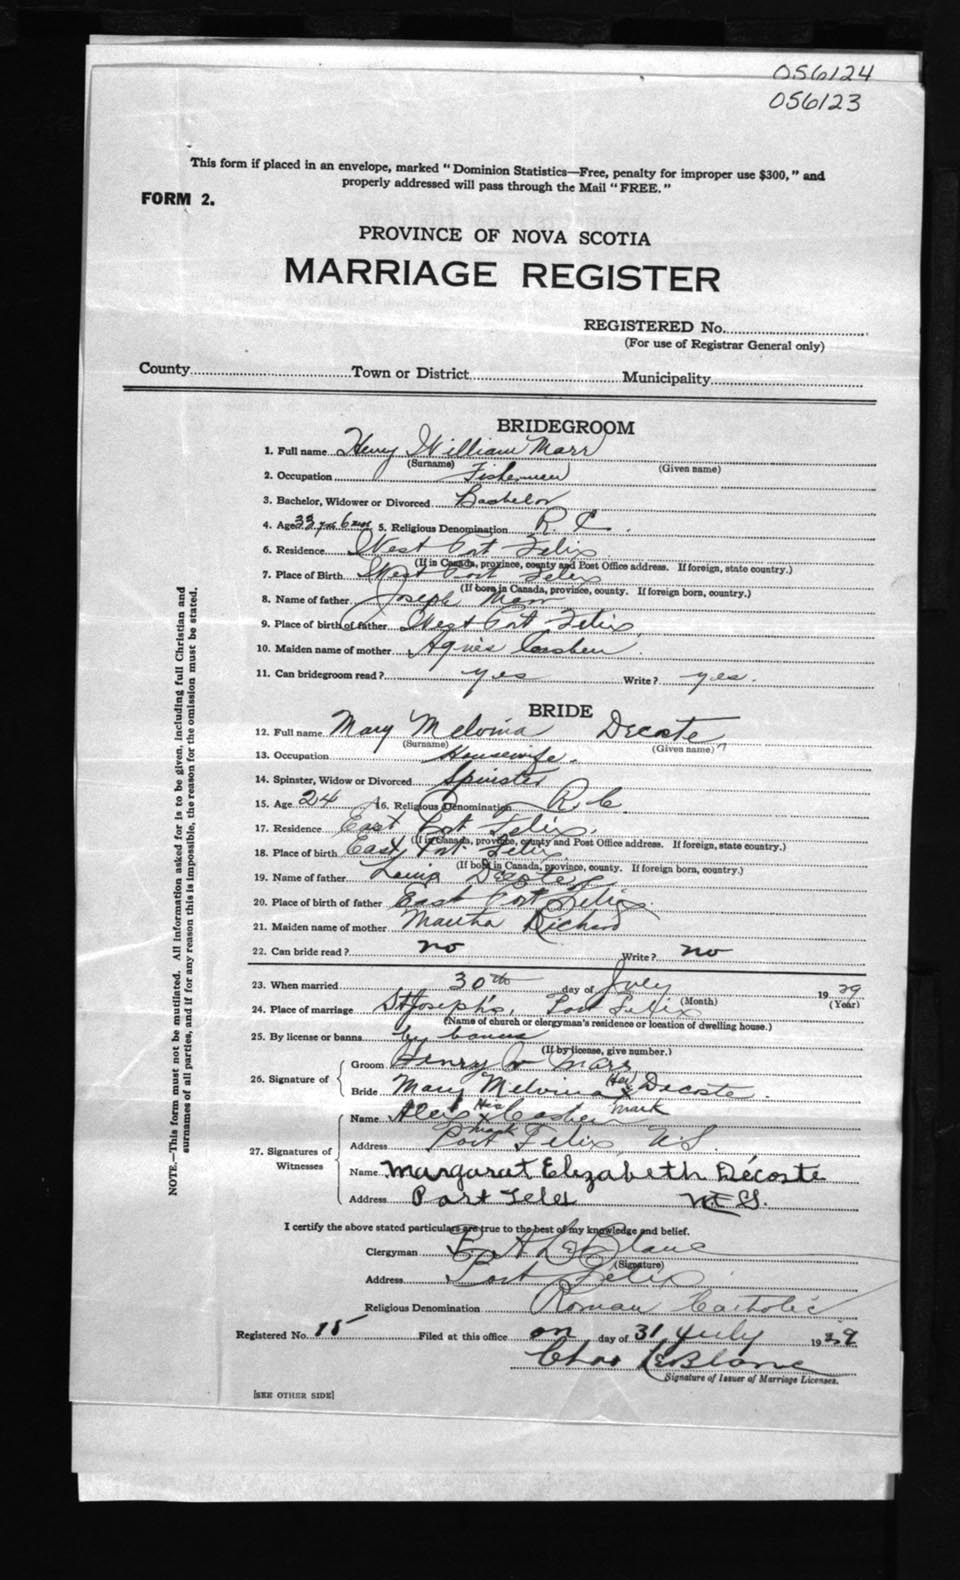 056124
056123
This form if placed in an envelope, marked "Dominion Statistics—Free, penalty for improper use $300," and
properly addressed will pass through the Mail "FREE."
FORM 2.
PROVINCE OF NOVA SCOTIA
MARRIAGE REGISTER
REGISTERED No.
(For use of Registrar General only)
County Town or District Municipality
BRIDEGROOM
1. Full name Henry William Marr
(Surname) (Given name)
2. Occupation Fisherman
3. Bachelor, Widower or Divorced Bachelor
4. Age 33 yrs 6 mos 5. Religious Denomination R.C.
6. Residence West Port Felix
(If in Canada, province, county and Post Office address. If foreign, state country.)
7. Place of Birth West Port Felix
(If born in Canada, province, county. If foreign born, country.)
8. Name of father Joseph Marr
9. Place of birth of father West Port Felix
10. Maiden name of mother Agnes
11. Can bridegroom read? yes Write? yes.
BRIDE
12. Full name Mary Melvina Decoste
(Surname) (Given name)
13. Occupation Housewife.
14. Spinster, Widow or Divorced Spinster
15. Age 24 16. Religious Denomination R.C
17. Residence East Port Felix.
(If in Canada, province, county and Post Office address. If foreign, state country.)
18. Place of birth East Port Felix
(If born in Canada, province, county. If foreign born, country.)
19. Name of father Louis Decoste
20. Place of birth of father East Port Felix
21. Maiden name of mother Martha Richard
22. Can bride read? no Write? no
23. When married 30th day of July 1929
(Month) (Year)
24. Place of marriage St Joseph's, Port Felix
(Name of church or clergyman's residence or location of dwelling house.)
25. By license or banns by banns
(If by license, give number.)
26. Signature of Groom Henry W Marr
Bride Mary Melvina her x mark Decoste.
27. Signatures of Witnesses
Name Alex His x mark
Address Port Felix N.S.
Name Margarat Elizabeth Decoste
Address N.S.
I certify the above stated particulars are true to the best of my knowledge and belief.
Clergyman LeBlanc
(Signature)
Address Port Felix
Religious Denomination Roman Catholic
Registered No. 15 Filed at this office on day of 31 July 1929
Chas LeBlanc
Signature of Issuer of Marriage Licenses.
[SEE OTHER SIDE]
NOTE.—This form must not be mutilated. All information asked for is to be given, including full Christian and
surnames of all parties, and if for any reason this is impossible, the reason for the omission must be stated.